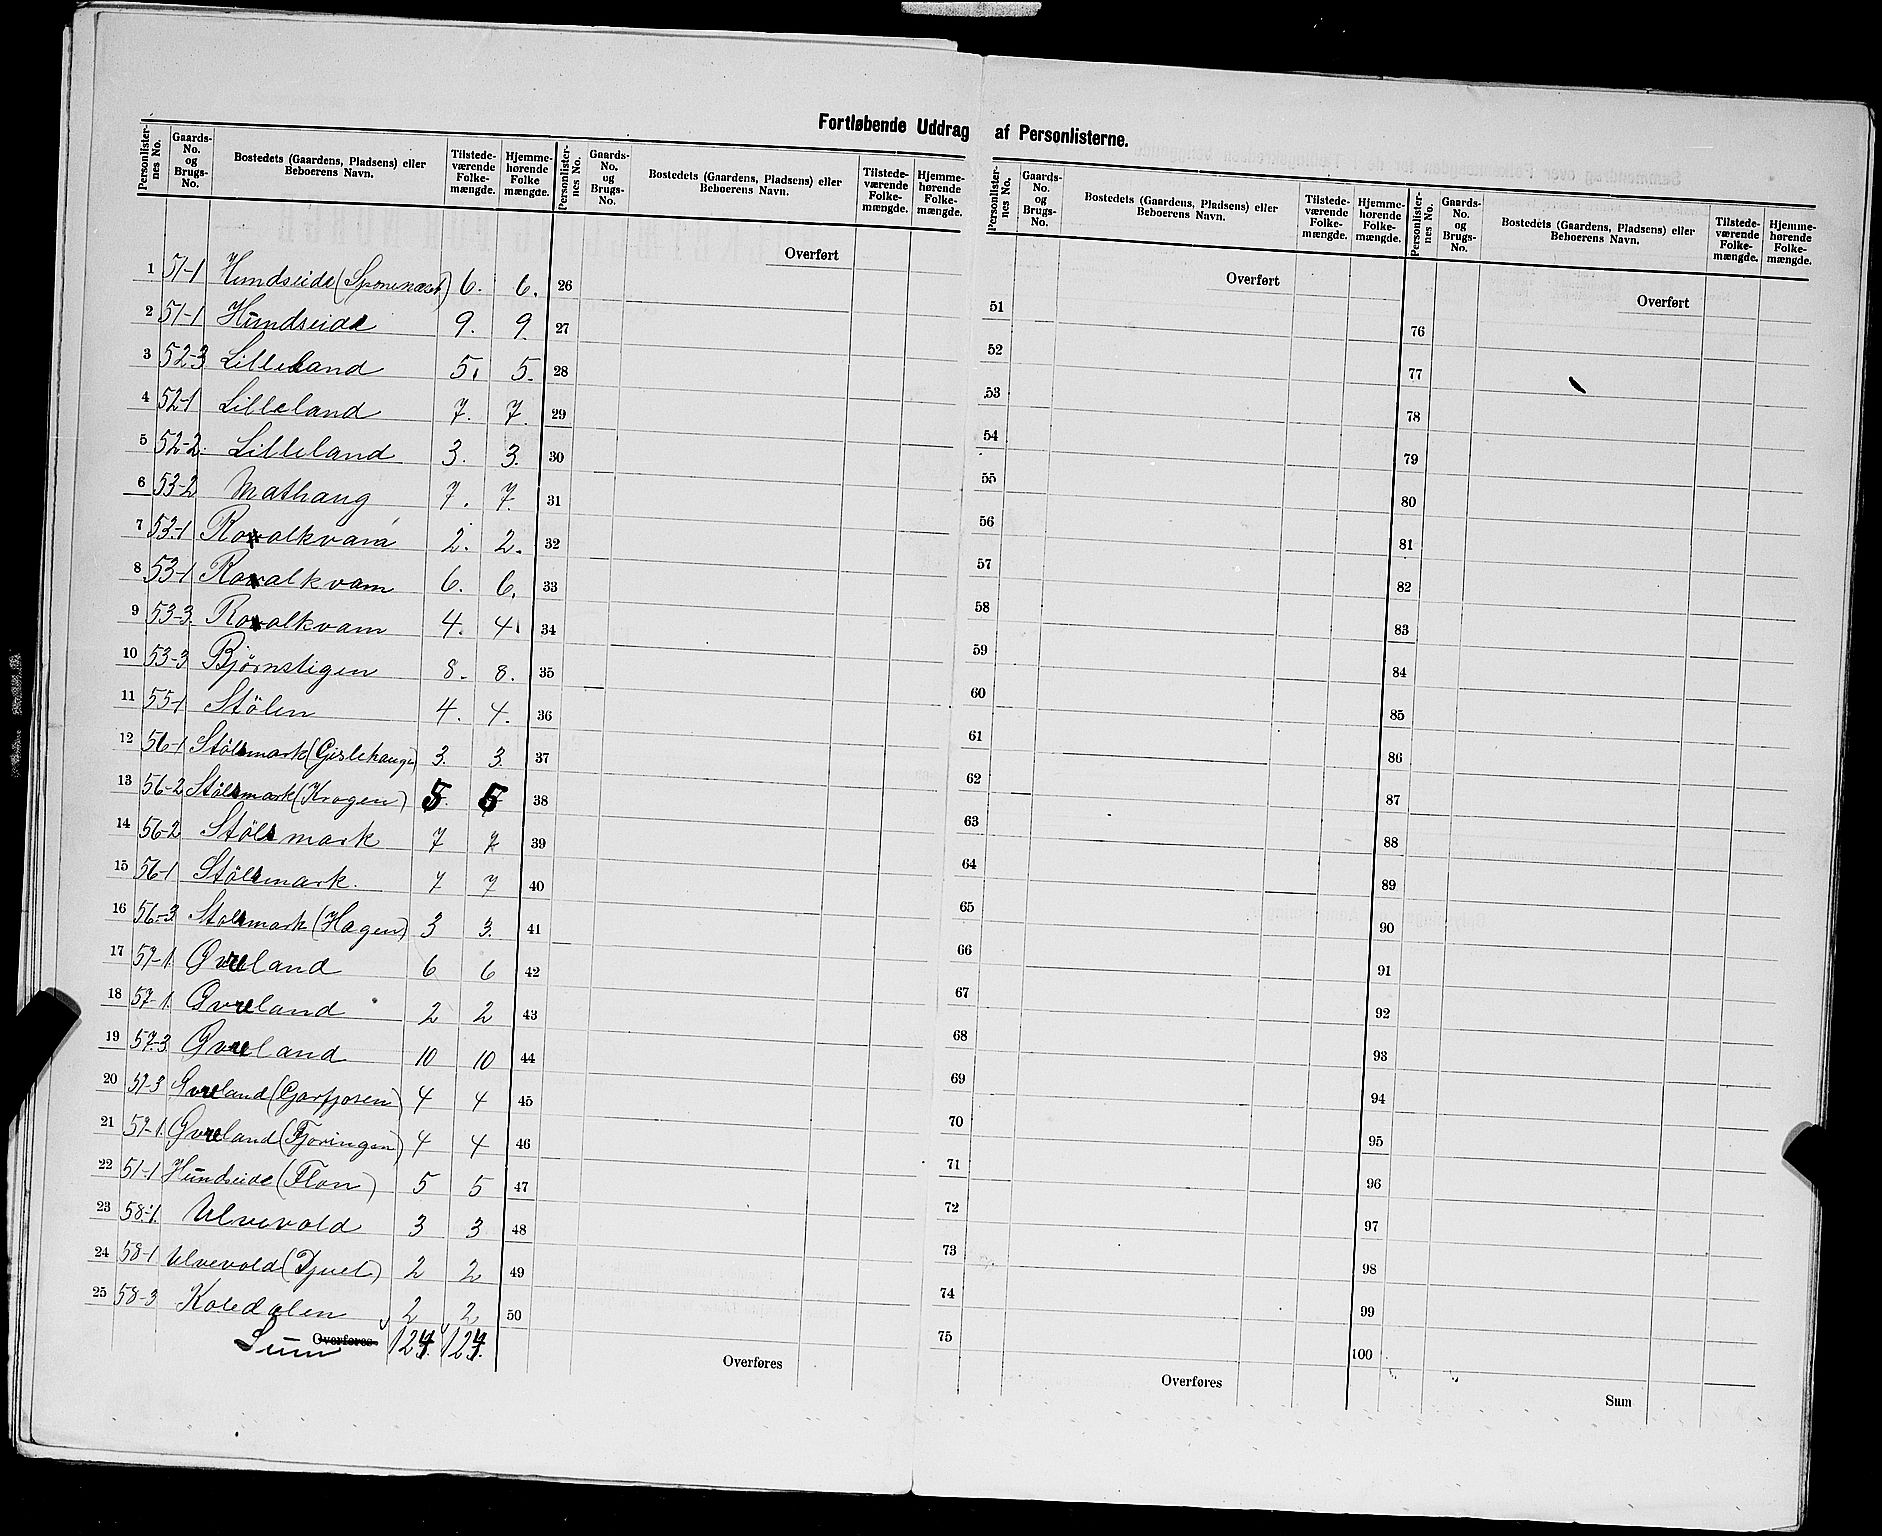 Fortløbende Uddrag af Personlisterne.
Personlister-nes No. | Gaards-No. og Brugs-No. | Bostedets (Gaardens, Pladsens) eller Beboerens Navn. | Tilstede-værende Folke-mængde. | Hjemme-hørende Folke mængde.
1 51-1 Hundseide (Sponenæset) 6. 6.
2 51-1 Hundseide 9. 9.
3 52-3 Lilleland 5. 5.
4 52-1 Lilleland 7. 7.
5 52-2. Lilleland 3. 3.
6 53-2 Mathaug 7. 7.
7 53-1 Roalkvam 2. 2.
8 53-1 Roalkvam 6. 6.
9 53-3. Roalkvam 4. 4.
10 53-3 Bjørnstigen 8. 8.
11 55-1 Stölen 4. 4.
12 56-1 Stölsmark (Gislehaugen) 3. 3.
13 56-2 Stölsmark (Krogen) 5. 5
14 56-2 Stölsmark 7 7
15 56-1 Stölsmark. 7 7
16 56-3 Stolsmark (Hagen) 3 3.
17 57-1. Øvreland 6 6
18 57-1. Øvreland 2 2
19 57-3 Øvreland 10 10
20 57-3 Øvreland (Garfjosen) 4 4
21 57-1. Øvreland (Fjoringen) 4 4
22 51-1 Hundseide (Flon) 5 5
23 58-1. Ulvevold 3 3
24 58-1 Ulvevold (Djuet) 2 2
25 58-3 Koledalen 2 2
Overføres Sum 124. 124.
Personlister-nes No. | Gaards-No. og Brugs-No. | Bostedets (Gaardens, Pladsens) eller Beboerens Navn. | Tilstede-værende Folke-mængde. | Hjemme-hørende Folke-mængde.
Overført
26
27
28
29
30
31
32
33
34
35
36
37
38
39
40
41
42
43
44
45
46
47
48
49
50
Overføres
Personlister-nes No. | Gaards-No. og Brugs-No. | Bostedets (Gaardens, Pladsens) eller Beboerens Navn. | Tilstede-værende Folke-mængde. | Hjemme-hørende Folke-mængde.
Overført
51
52
53
54
55
56
57
58
59
60
61
62
63
64
65
66
67
68
69
70
71
72
73
74
75
Overføres
Personlister-nes No. | Gaards-No. og Brugs-No. | Bostedets (Gaardens, Pladsens) eller Beboerens Navn. | Tilstede-værende Folke-mængde. | Hjemme-hørende Folke-mængde.
Overført
76
77
78
79
80
81
82
83
84
85
86
87
88
89
90
91
92
93
94
95
96
97
98
99
100
Sum